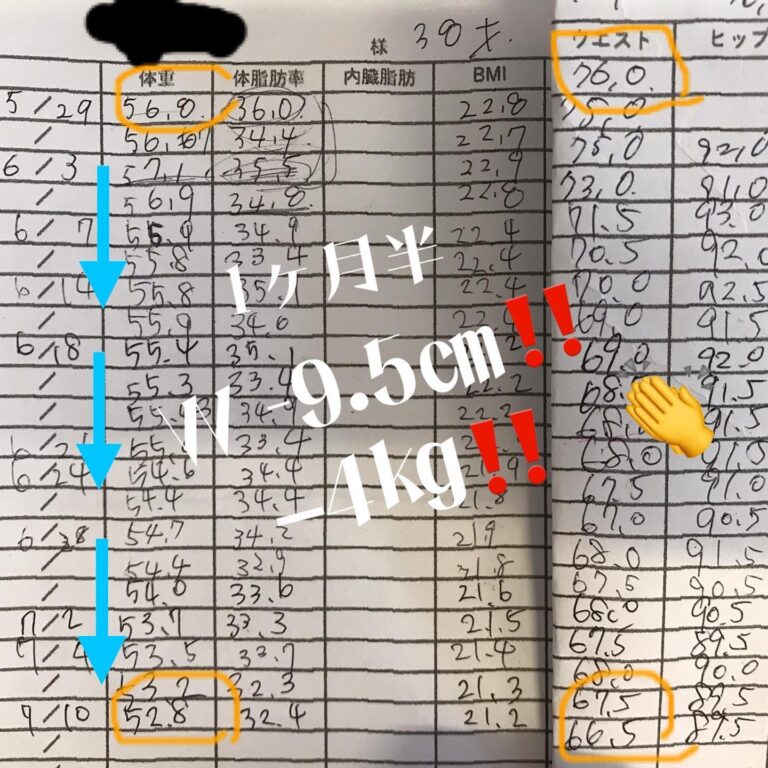 様 38才.
体重 体脂肪率 内臓脂肪 BMI ウエスト ヒップ
5/29 56.8 36.0 22.8 76.0
/ 34.4 22.7
6/3 57.1 35.5 22.9 75.0 92.0
/ 56.9 34.8 22.8 73.0 91.0
6/7 55.9 34.9 22.4 71.5 93.0
/ 55.8 33.4 22.4 70.5 92.0
6/14 55.8 22.4 70.0 92.5
/ 55.9 34.0 69.0 91.5
6/18 55.4 35.1 69.0 92.0
/ 55.3 33.4 22.2 91.5
/ 22.2 91.5
33.4 68.0 91.0
6/24 54.6 34.4 21.9 67.5 91.0
/ 54.4 34.4 21.8 67.0 90.5
54.7 34.2 21.9
/ 54.4 32.9 21.8 68.0 91.5
/ 54.0 33.6 21.6 67.5 90.5
7/2 53.7 33.3 21.5 68.0 90.5
7/4 53.5 33.7 21.4 67.5 89.5
/ 53.2 32.3 21.3 68.0 90.0
7/10 52.8 32.4 21.2 67.5 89.5
66.5 89.5
1ヶ月半
W -9.5cm‼️
-4kg‼️